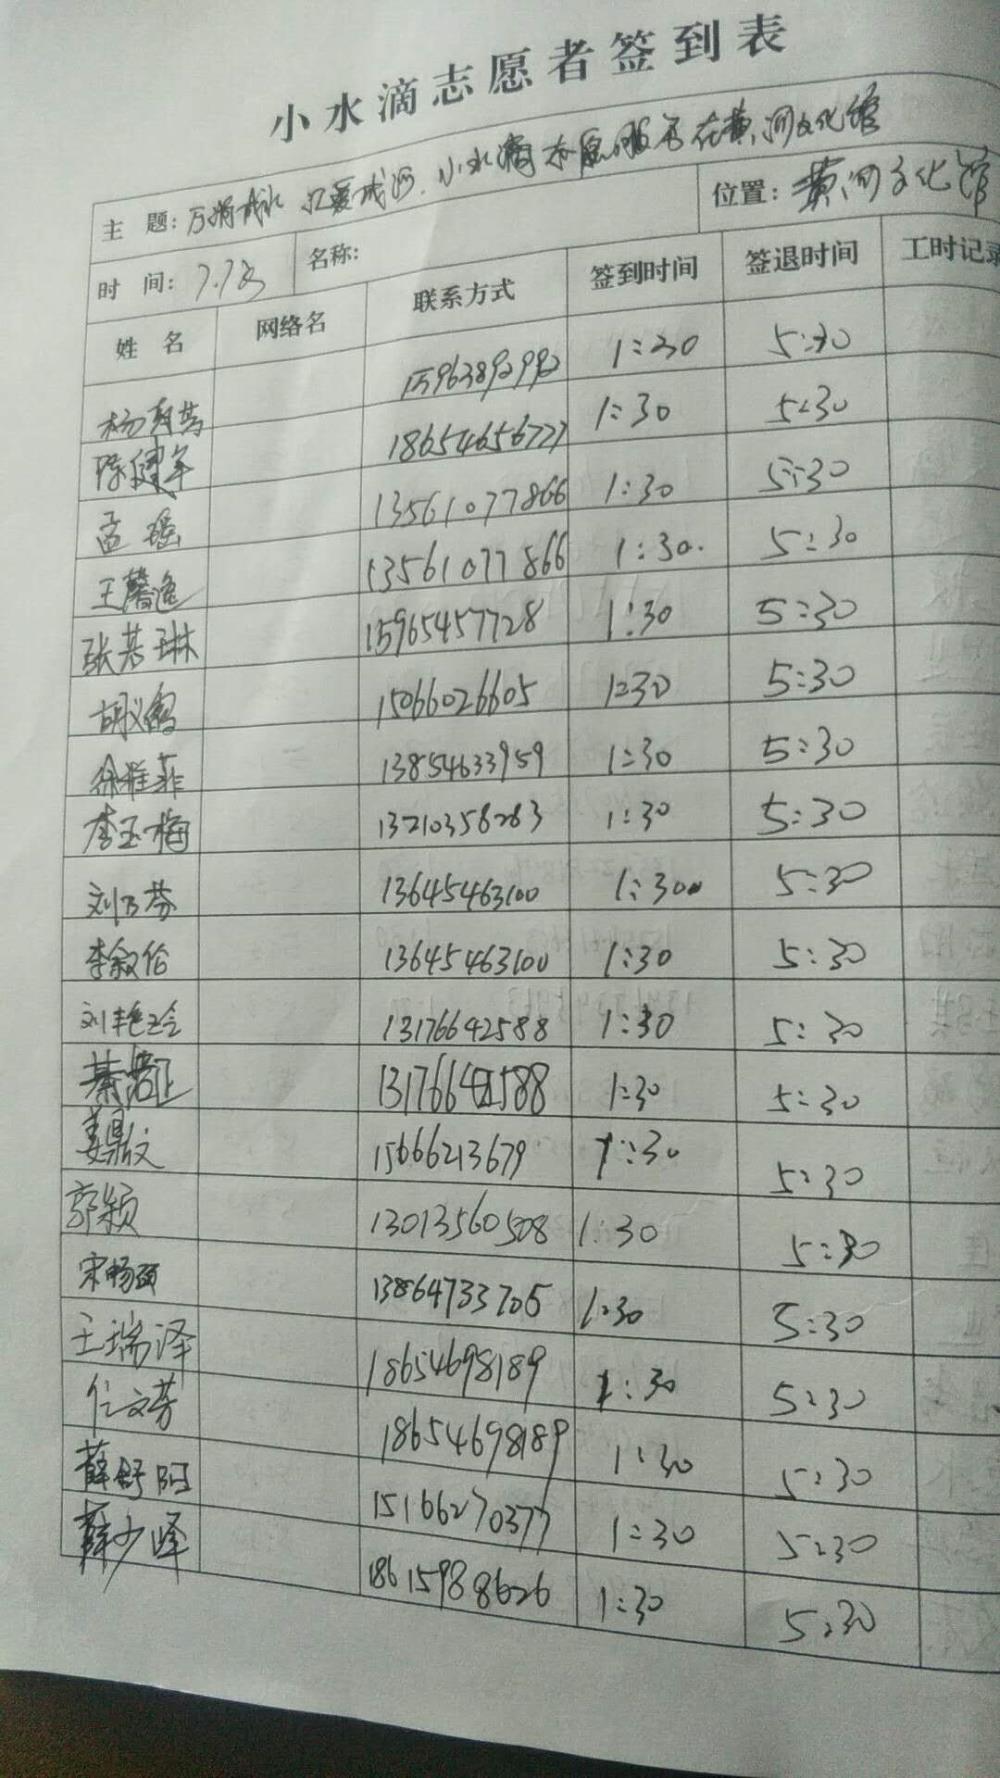 小水滴志愿者签到表
主 题: 万涓成水 汇爱成河.小水滴志愿服务在黄河文化馆
位置: 黄河文化馆
时 间: 7.7 名称:
姓 名 网络名 联系方式 签到时间 签退时间 工时记录
15963892992 1:30 5:30
陈健军 18654656727 1:30 5:30
孟瑶 13561077866 1:30 5:30
王馨逸 13561077866 1:30. 5:30
张若琳 15965457728 1:30 5:30
胡义鹤 15066026605 1:30 5:30
徐雅菲 13854633959 1:30 5:30
李玉梅 13210358283 1:30 5:30
刘乃芬 13645463100 1:30 5:30
李叙伦 13645463100 1:30 5:30
刘艳玲 13176642588 1:30 5:30
綦 13176642588 1:30 5:30
姜鼎文 15666213679 1:30 5:30
郭颖 13013560508 1:30 5:30
宋畅硕 13864733705 1:30 5:30
王瑞泽 18654698189 1:30 5:30
仁文芳 18654698189 1:30 5:30
薛舒阳 15166270377 1:30 5:30
薛少峰 18615988626 1:30 5:30